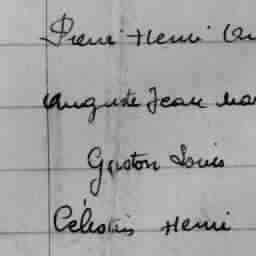 Pierre Henri
Auguste Jean
Gaston Louis
Célestin Henri